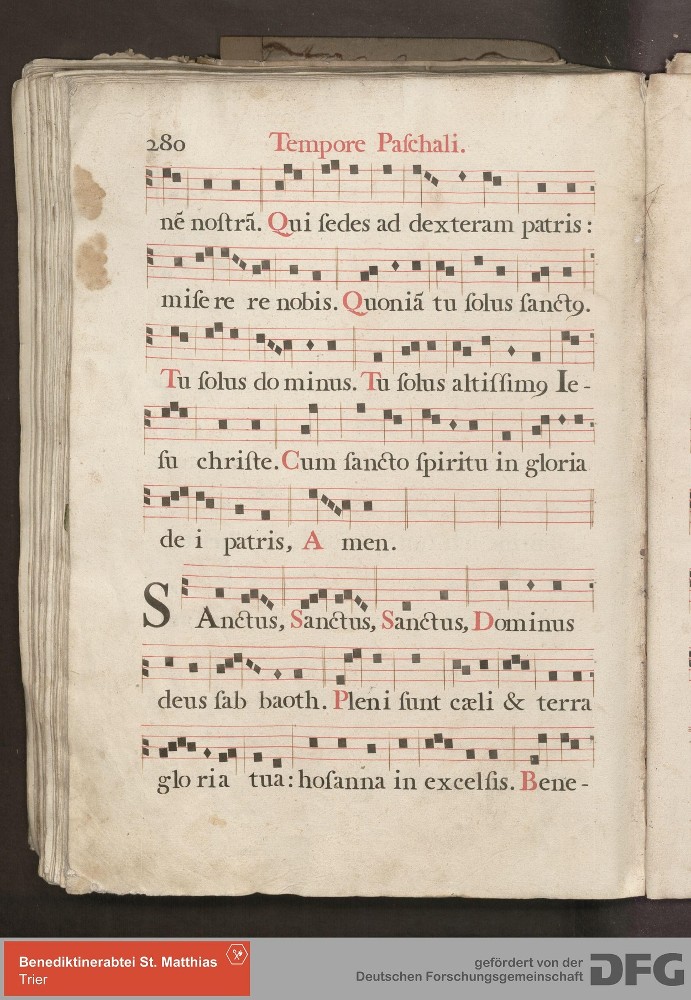 280 Tempore Paſchali.
nē noſtrā. Qui ſedes ad dexteram patris:
miſe re re nobis. Quoniā tu ſolus ſanctꝰ.
Tu ſolus do minus. Tu ſolus altiſſimꝰ Ie-
ſu chriſte. Cum ſancto ſpiritu in gloria
de i patris, A men.
SAnctus, Sanctus, Sanctus, Dominus
deus ſab baoth. Pleni ſunt cæli & terra
glo ria tua: hoſanna in excelſis. Bene-
Benediktinerabtei St. Matthias
Trier
gefördert von der
Deutschen Forschungsgemeinschaft
DFG